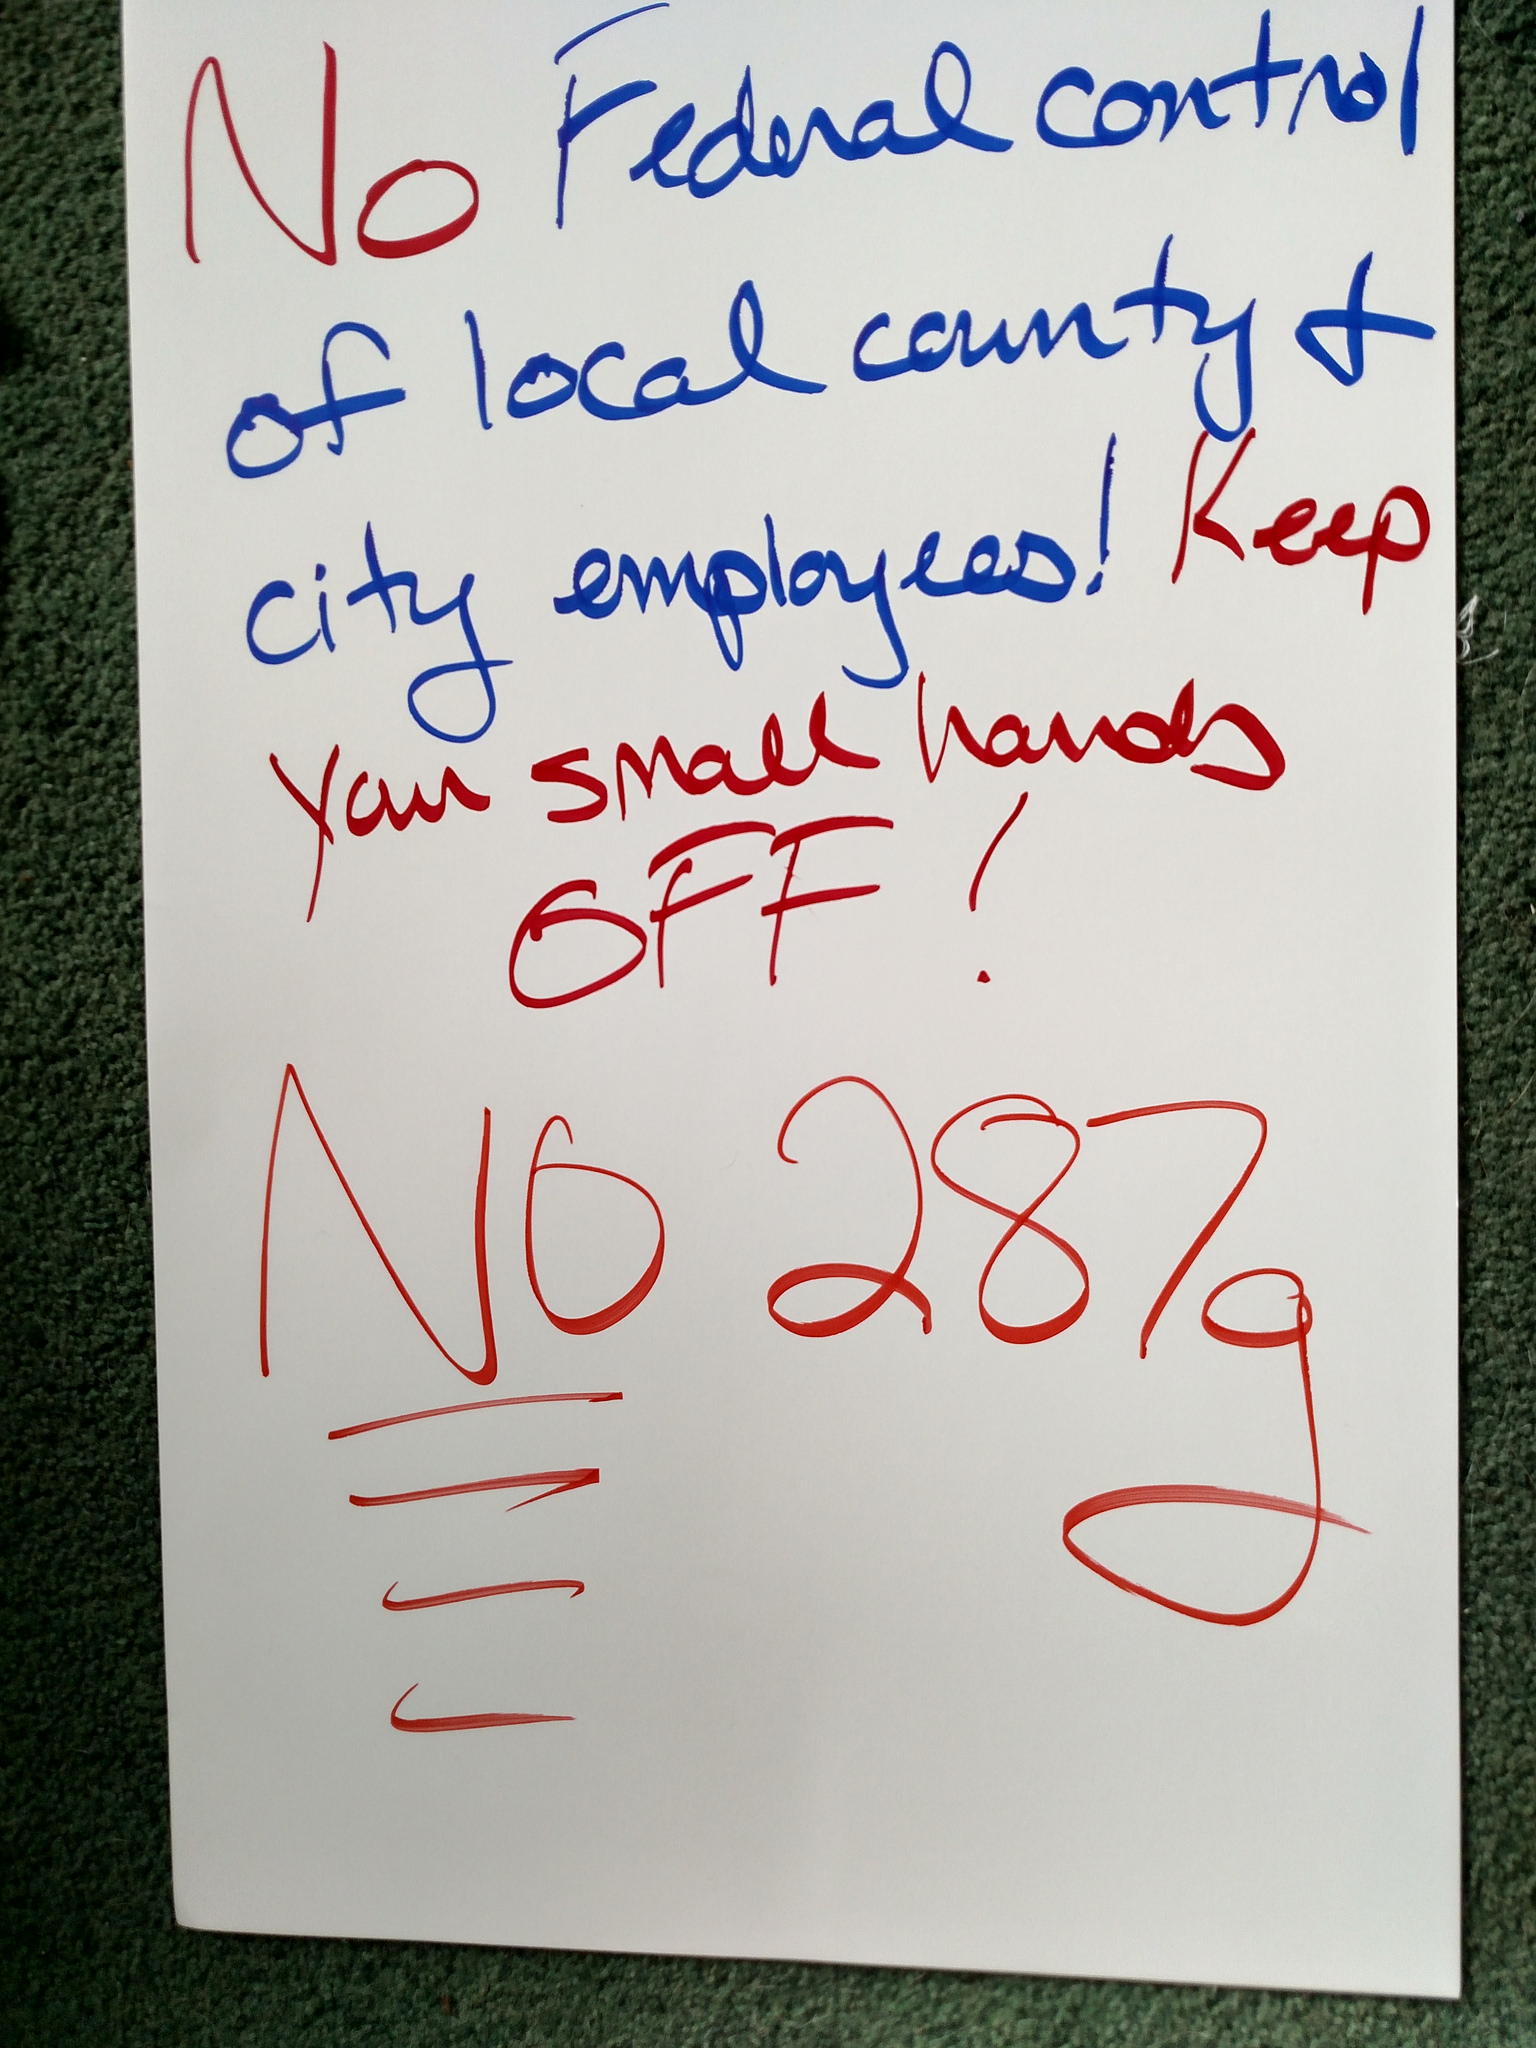 No Federal control
of local county &
city employees! Keep
your small hands
OFF!
NO 287g